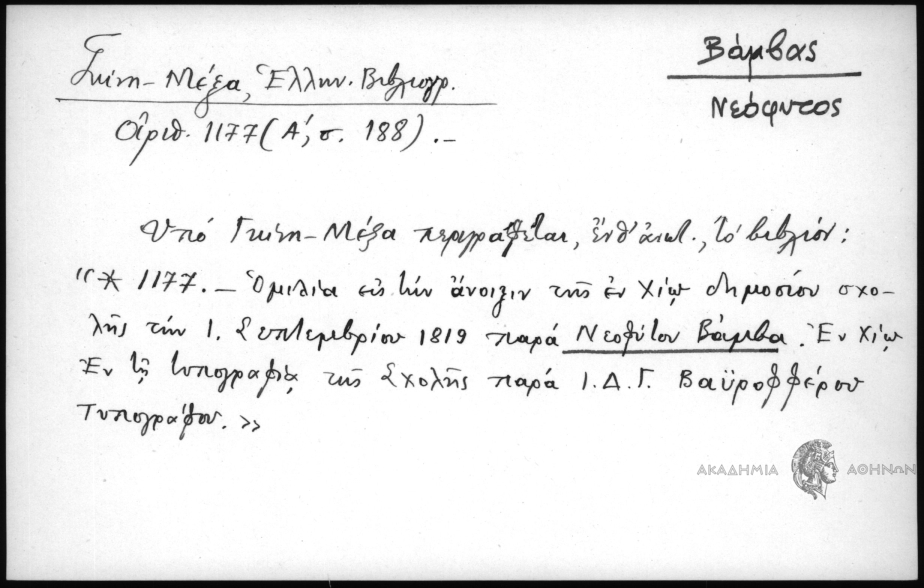 Βάμβας
Νεόφυτος
Γκίνη - Μέξα, Ἑλλην. Βιβλιογρ.
ἀριθ. 1177 (Α΄, σ. 188) . –
Ὑπό Γκίνη - Μέξα περιγράφεται, ἔνθ' ἀνωτ., τό βιβλίον:
“* 1177. – Ὁμιλία εἰς τήν ἄνοιξιν τῆς ἐν Χίῳ δημοσίου σχο-
λῆς τήν 1. Σεπτεμβρίου 1819 παρά Νεοφύτου Βάμβα. Ἐν Χίῳ
Ἐν τῇ τυπογραφίᾳ τῆς Σχολῆς παρά Ι.Δ.Γ. Βαϋροφφέρου
Τυπογράφου. »
ΑΚΑΔΗΜΙΑ ΑΘΗΝΩΝ